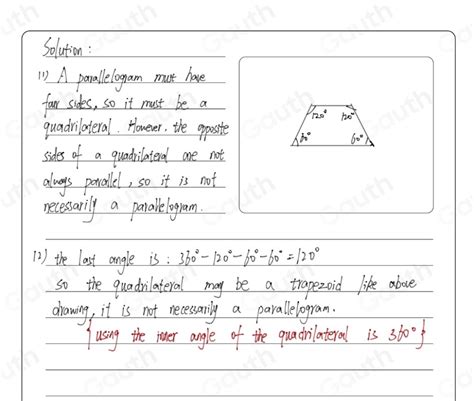 Solution :
(1) A parallelogram must have
four sides, so it must be a
quadrilateral. However, the opposite
sides of a quadrilateral are not
always parallel, so it is not
necessarily a parallelogram.
120° 120°
60° 60°
(2) the last angle is : 360° - 120° - 60° - 60° = 120°
so the quadrilateral may be a trapezoid like above
drawing, it is not necessarily a parallelogram.
{using the inner angle of the quadrilateral is 360°}